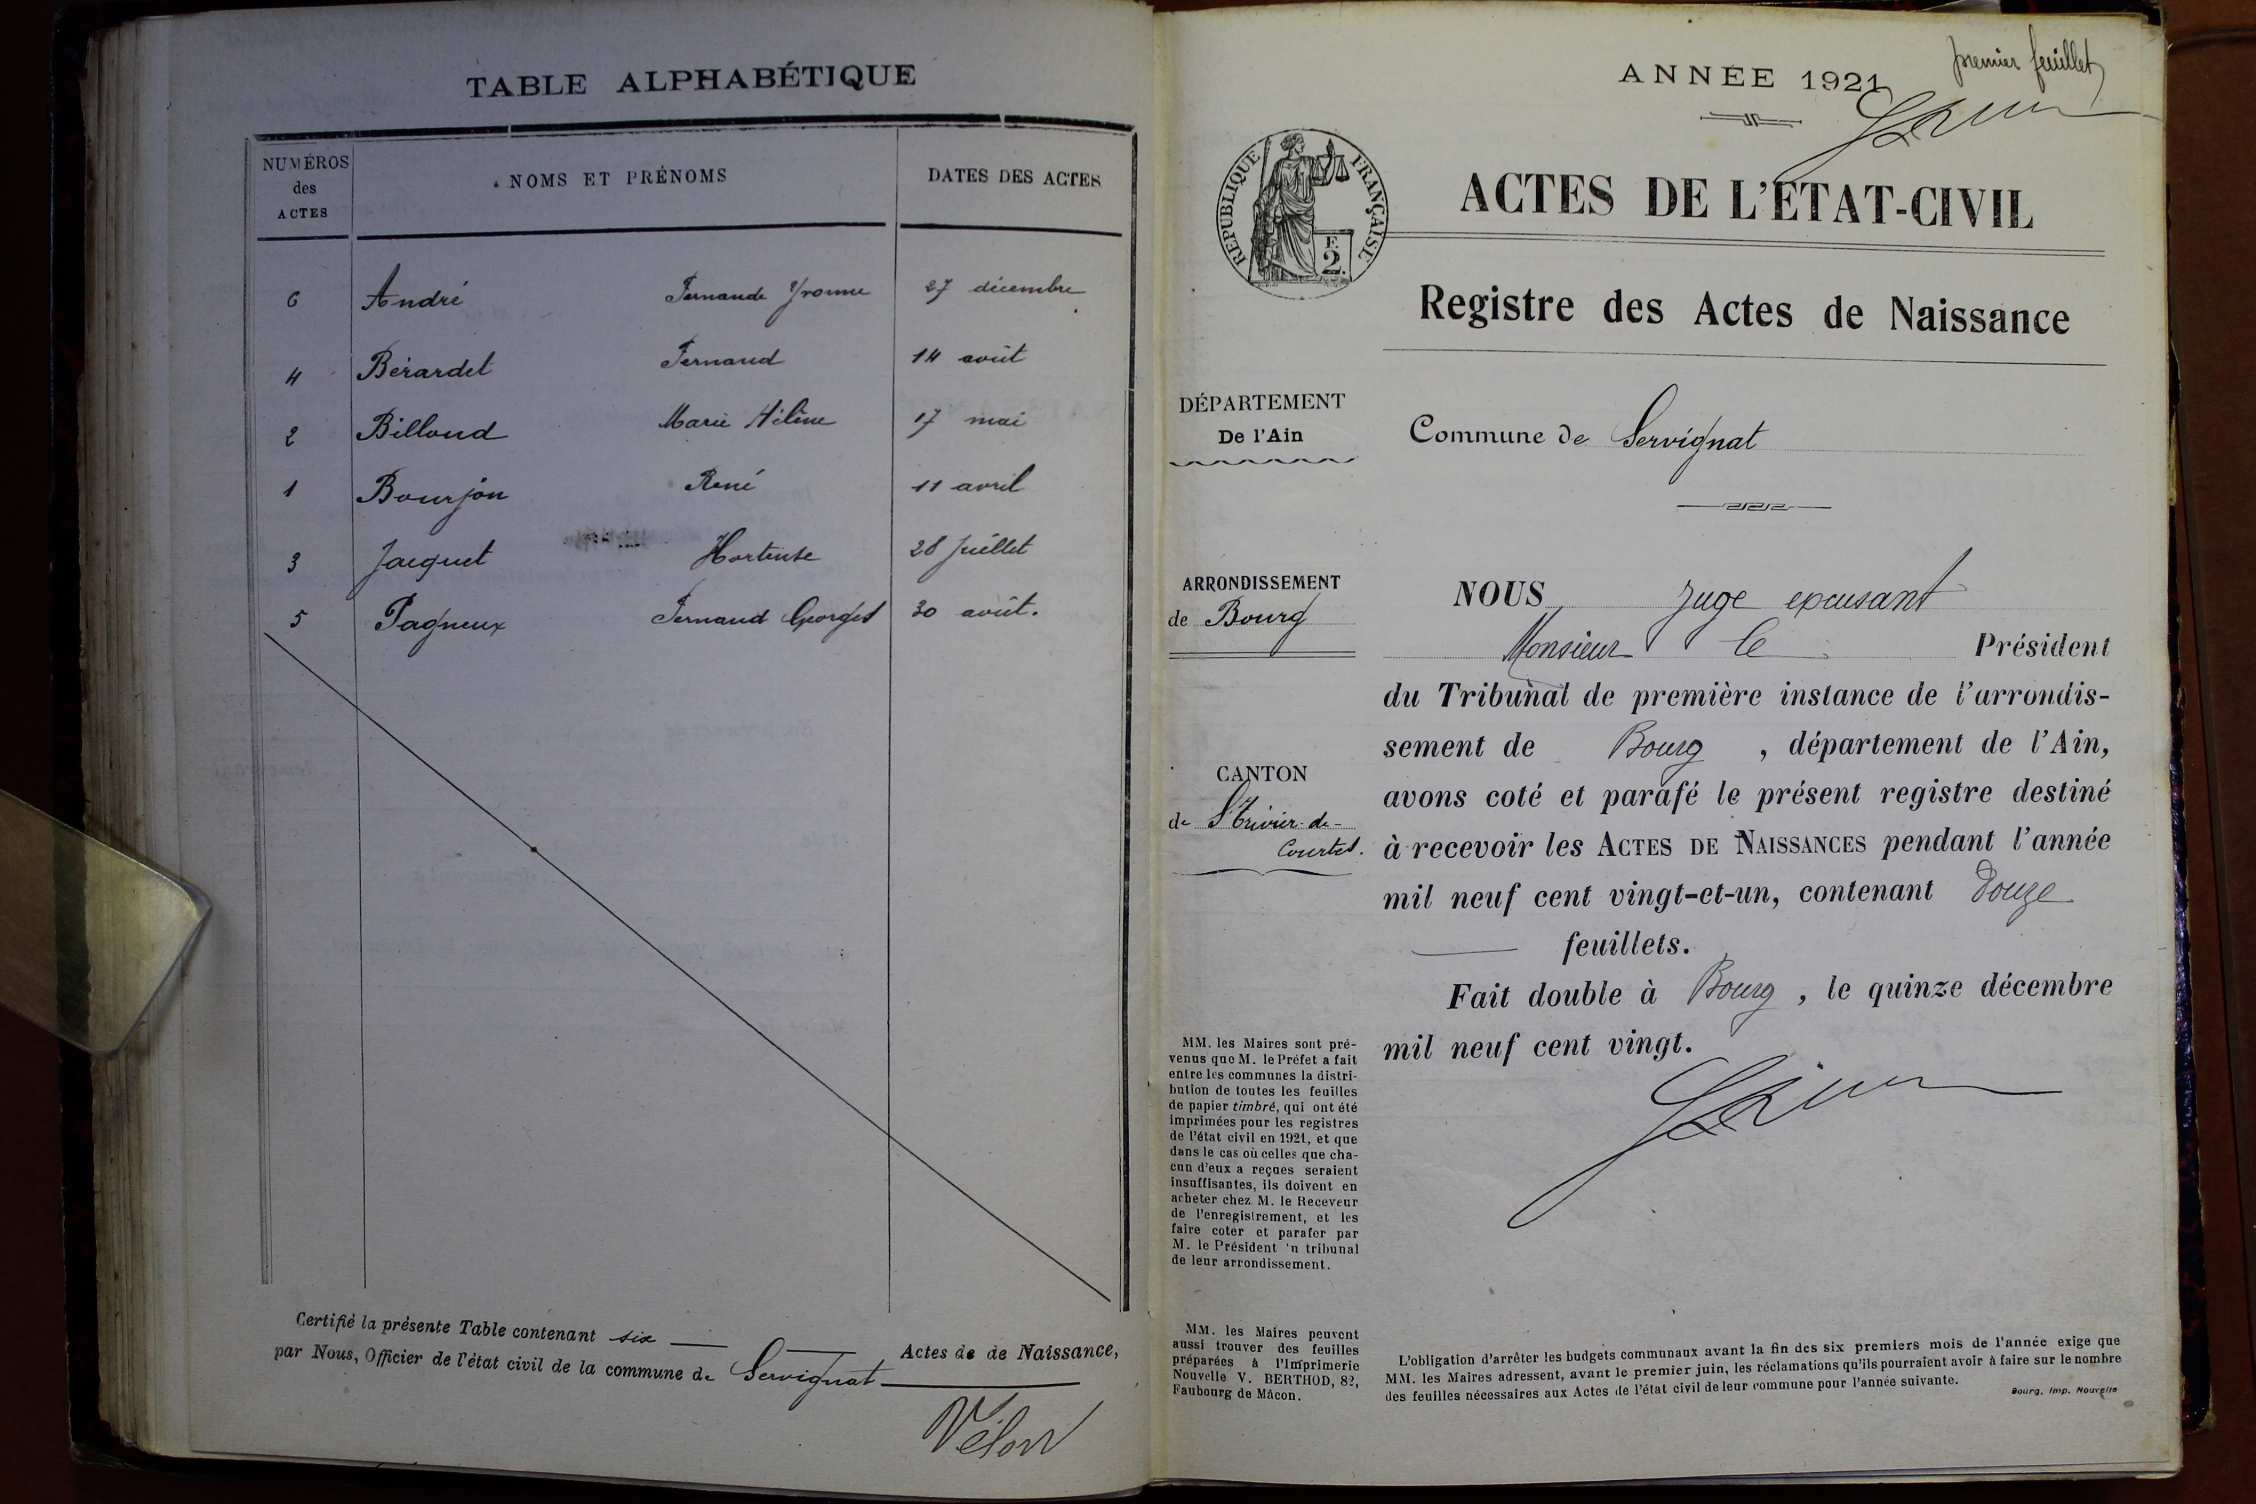 TABLE ALPHABÉTIQUE
NUMÉROS des ACTES NOMS ET PRÉNOMS DATES DES ACTES
6 André Fernande Yvonne 27 décembre
4 Bérardet Fernand 14 août
2 Billoud Marie Hélène 17 mai
1 Bourjon René 11 avril
3 Jacquet Hortense 28 Juillet
5 Pagneux Fernand Georges 30 août.
Certifié la présente Table contenant six Actes de de Naissance,
par Nous, Officier de l'état civil de la commune de Servignat
premier feuillet
ANNÉE 1921
RÉPUBLIQUE FRANÇAISE
F.
2.
ACTES DE L'ÉTAT-CIVIL
Registre des Actes de Naissance
DÉPARTEMENT
De l'Ain
Commune de Servignat
ARRONDISSEMENT
de Bourg
CANTON
de St Trivier-de-
Courtes.
NOUS juge excusant
Monsieur le Président
du Tribunal de première instance de l'arrondis-
sement de Bourg, département de l'Ain,
avons coté et parafé le présent registre destiné
à recevoir les ACTES DE NAISSANCES pendant l'année
mil neuf cent vingt-et-un, contenant Douze
feuillets.
Fait double à Bourg, le quinze décembre
mil neuf cent vingt.
MM. les Maires sont pré-
venus que M. le Préfet a fait
entre les communes la distri-
bution de toutes les feuilles
de papier timbré, qui ont été
imprimées pour les registres
de l'état civil en 1921, et que
dans le cas où celles que cha-
cun d'eux a reçues seraient
insuffisantes, ils doivent en
acheter chez M. le Receveur
de l'enregistrement, et les
faire coter et parafer par
M. le Président 'n tribunal
de leur arrondissement.
MM. les Maires peuvent
aussi trouver des feuilles
préparées à l'Imprimerie
Nouvelle V. BERTHOD, 82,
Faubourg de Mâcon.
L'obligation d'arrêter les budgets communaux avant la fin des six premiers mois de l'année exige que
MM. les Maires adressent, avant le premier juin, les réclamations qu'ils pourraient avoir à faire sur le nombre
des feuilles nécessaires aux Actes de l'état civil de leur commune pour l'année suivante.
Bourg, Imp. Nouvelle